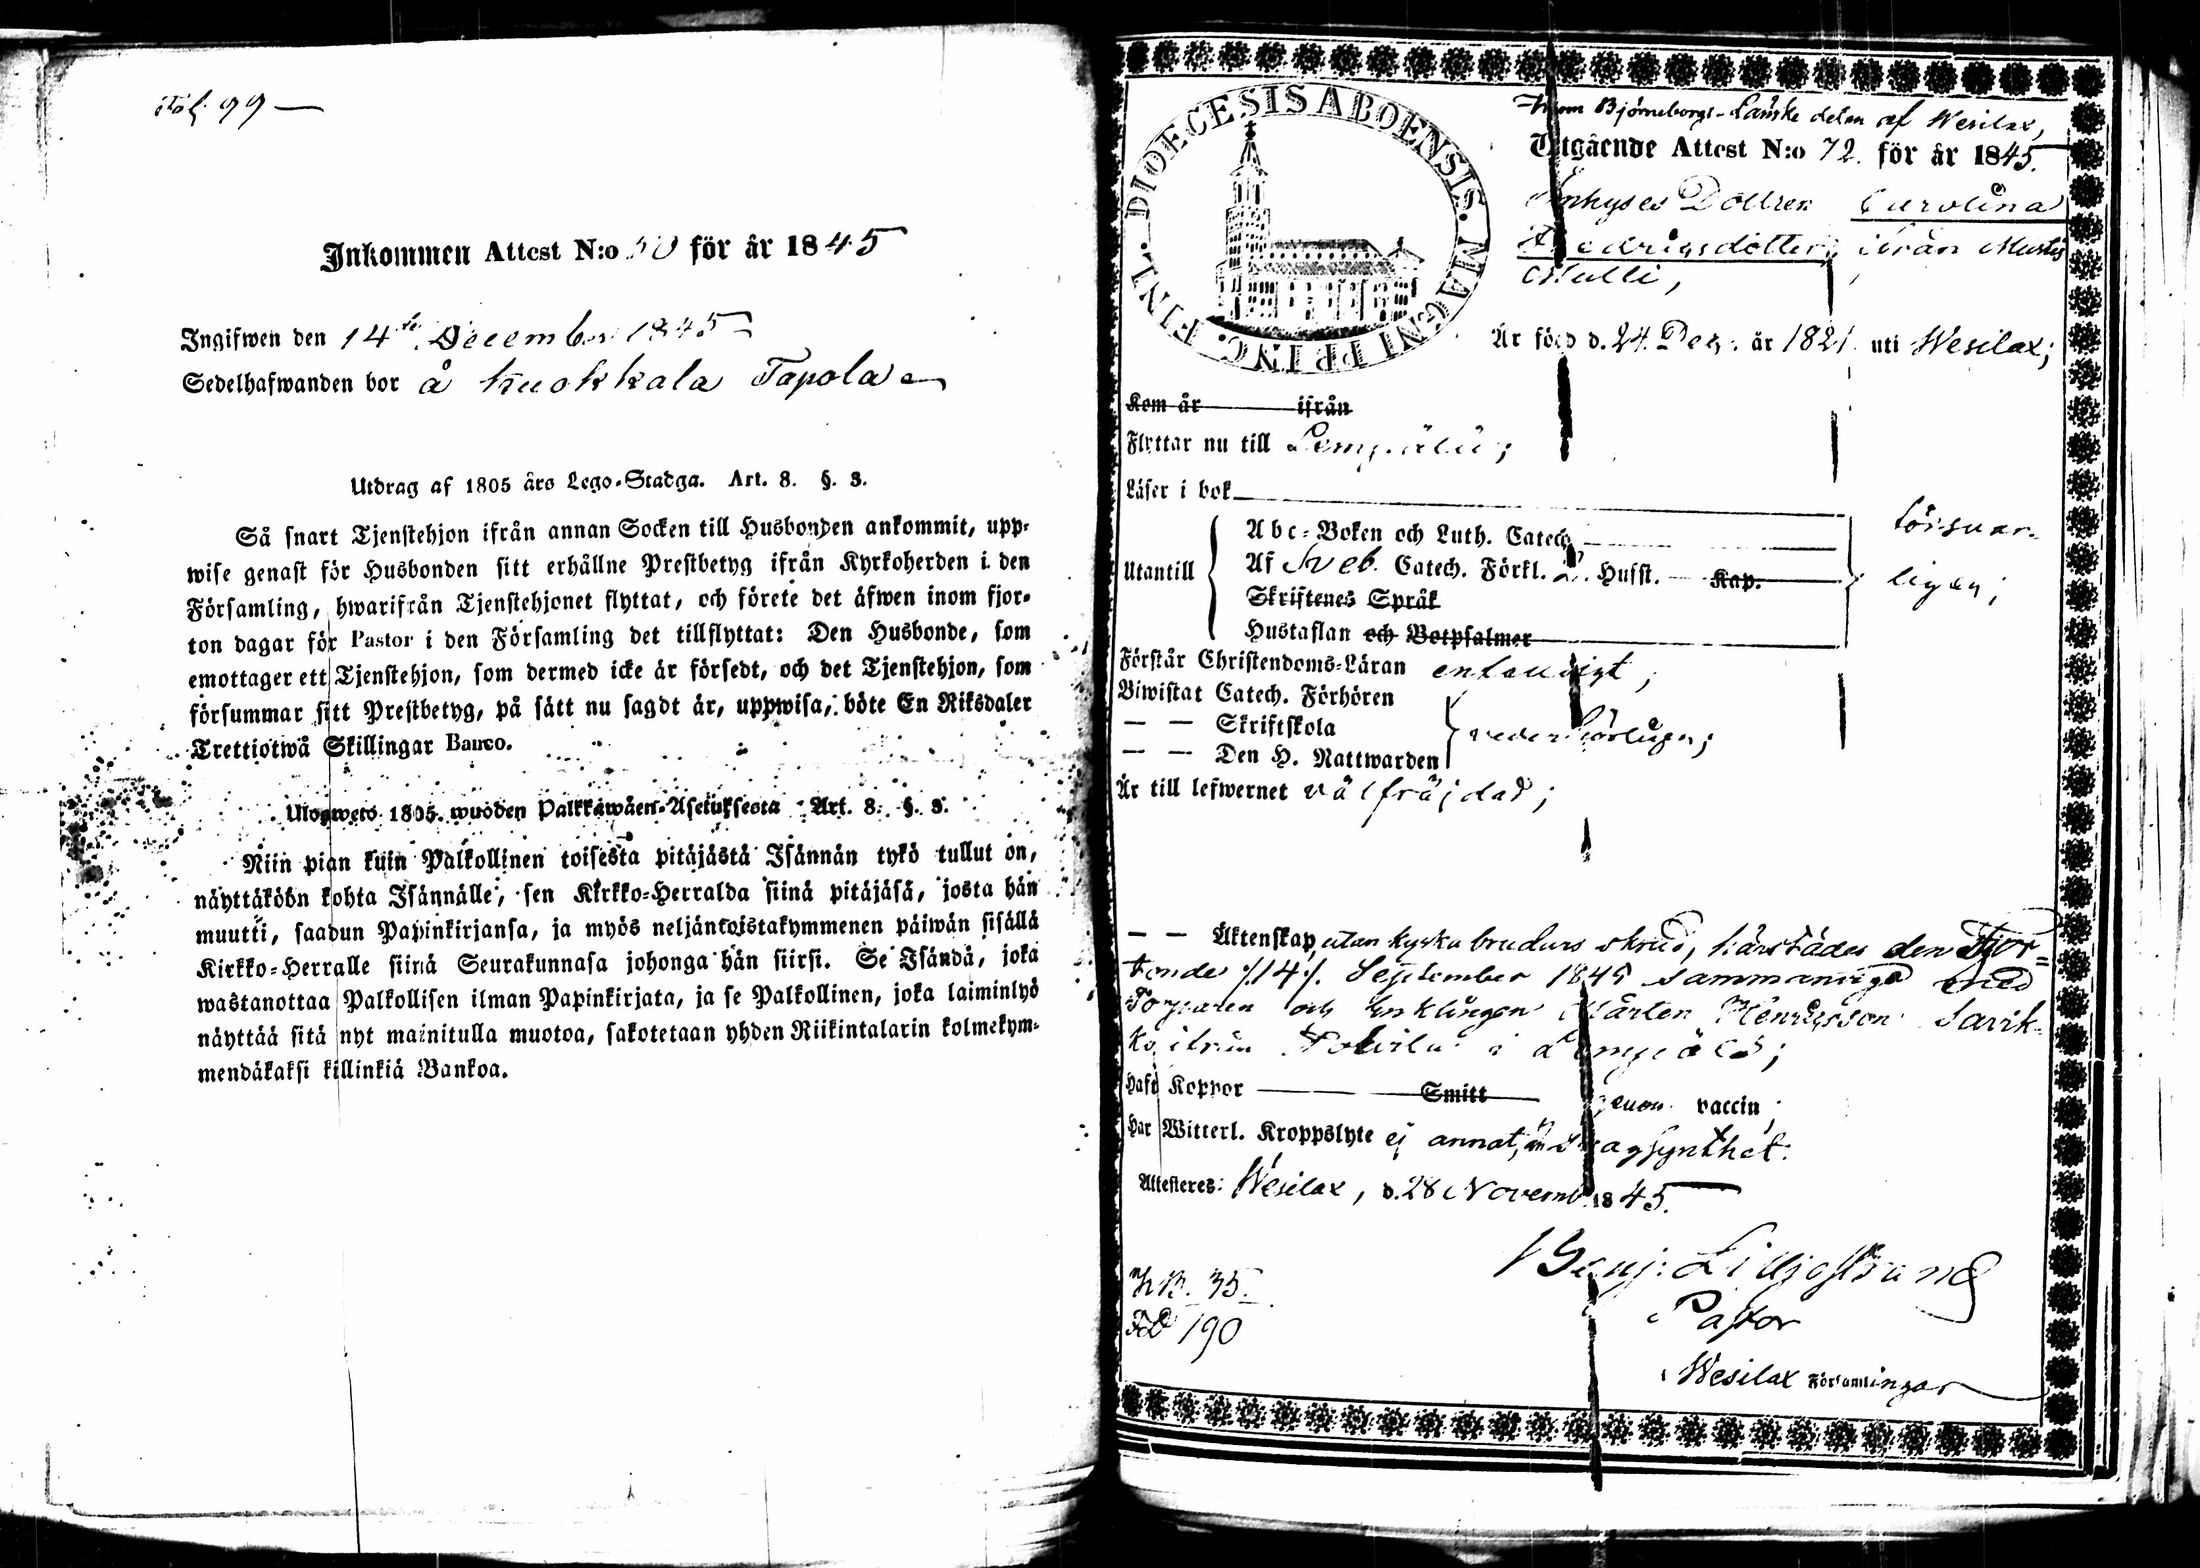 Fol. 99
Inkommen Attest N:o 50 för år 1845
Ingifwen den 14de December 1845
Sedelhafwanden bor å Kuokkala Tapola
Utdrag af 1805 års Lego-Stadga. Art. 8. §. 3.
Så snart Tjenstehjon ifrån annan Socken till Husbonden ankommit, upp-
wise genast för Husbonden sitt erhållne Prestbetyg ifrån Kyrkoherden i den
Församling, hwarifrån Tjenstehjonet flyttat, och förete det äfwen inom fjor-
ton dagar för Pastor i den Församling det tillflyttat: Den Husbonde, som
emottager ett Tjenstehjon, som dermed icke är försedt, och det Tjenstehjon, som
försummar sitt Prestbetyg, på sätt nu sagdt är, uppwisa, böte En Riksdaler
Trettiotwå Skillingar Banco.
Ulosweto 1805 wuoden Palkkawäen-Asetuksesta Art. 8. §. 3.
Niin pian kuin Palkollinen toisesta pitäjästä Isännän tykö tullut on,
näyttäköön kohta Isännälle, sen Kirkko-Herralda siinä pitäjäsä, josta hän
muutti, saadun Papinkirjansa, ja myös neljäntoistakymmenen päiwän sisällä
Kirkko-Herralle siinä Seurakunnasa johonga hän siirsi. Se Isändä, joka
wastanottaa Palkollisen ilman Papinkirjata, ja se Palkollinen, joka laiminlyö
näyttää sitä nyt mainitulla muotoa, sakotetaan yhden Riikintalarin kolmekym-
mendäkaksi killinkiä Bankoa.
DIOECESIS ABOENSIS. MAGNI PRINC. FINL.
Björneborgs-Länske delen af Wesilax,
Utgående Attest N:o 72. för år 1845.
Inhyses Dottren Carolina
Fredricsdotter, ifrån Mustis
Mulli,
Är född d. 24. Dez. år 1821 uti Wesilax;
Kom år ifrån
Flyttar nu till Lempälä;
Läser i bok
Utantill
Abc-Boken och Luth. Catech.
Af Sveb. Catech. Förkl. Husst. Kap.
Skriftenes Språk
Hustaflan och Botpsalmer
försvar-
ligen;
Förstår Christendoms-Läran enfaldigt;
Biwistat Catech. Förhören
— — Skriftskola
— — Den H. Nattwarden
vederbörligen;
Är till lefwernet välfräjdad;
— — Äktenskap, utan kyska brudars skrud, härstädes den Fjor-
tonde /.14./ September 1845 sammanvigd med
Torparen och Enklingen Mårten Henricsson Savik-
ko ifrån i Lempälä;
Haft Koppor Smitt genom vaccin;
Har Witterl. Kroppslyte ej annat, än svagsynthet.
Attesteres: Wesilax, d. 28 Novemb. 1845.
Benj: Lilljestrand
Pastor
Wesilax Församlingar
KB. 35.
190